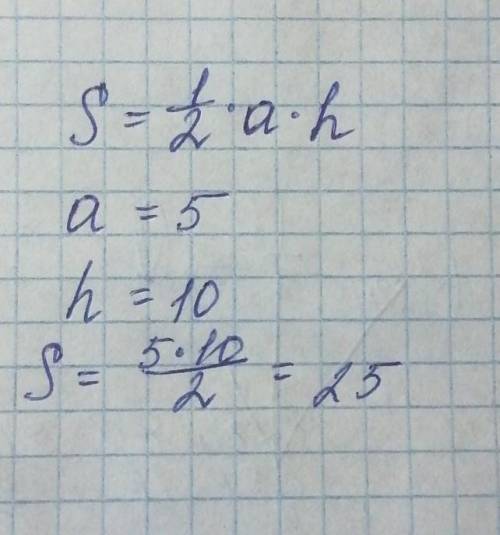 S = 1/2 · a · h
a = 5
h = 10
S = 5·10/2 = 25